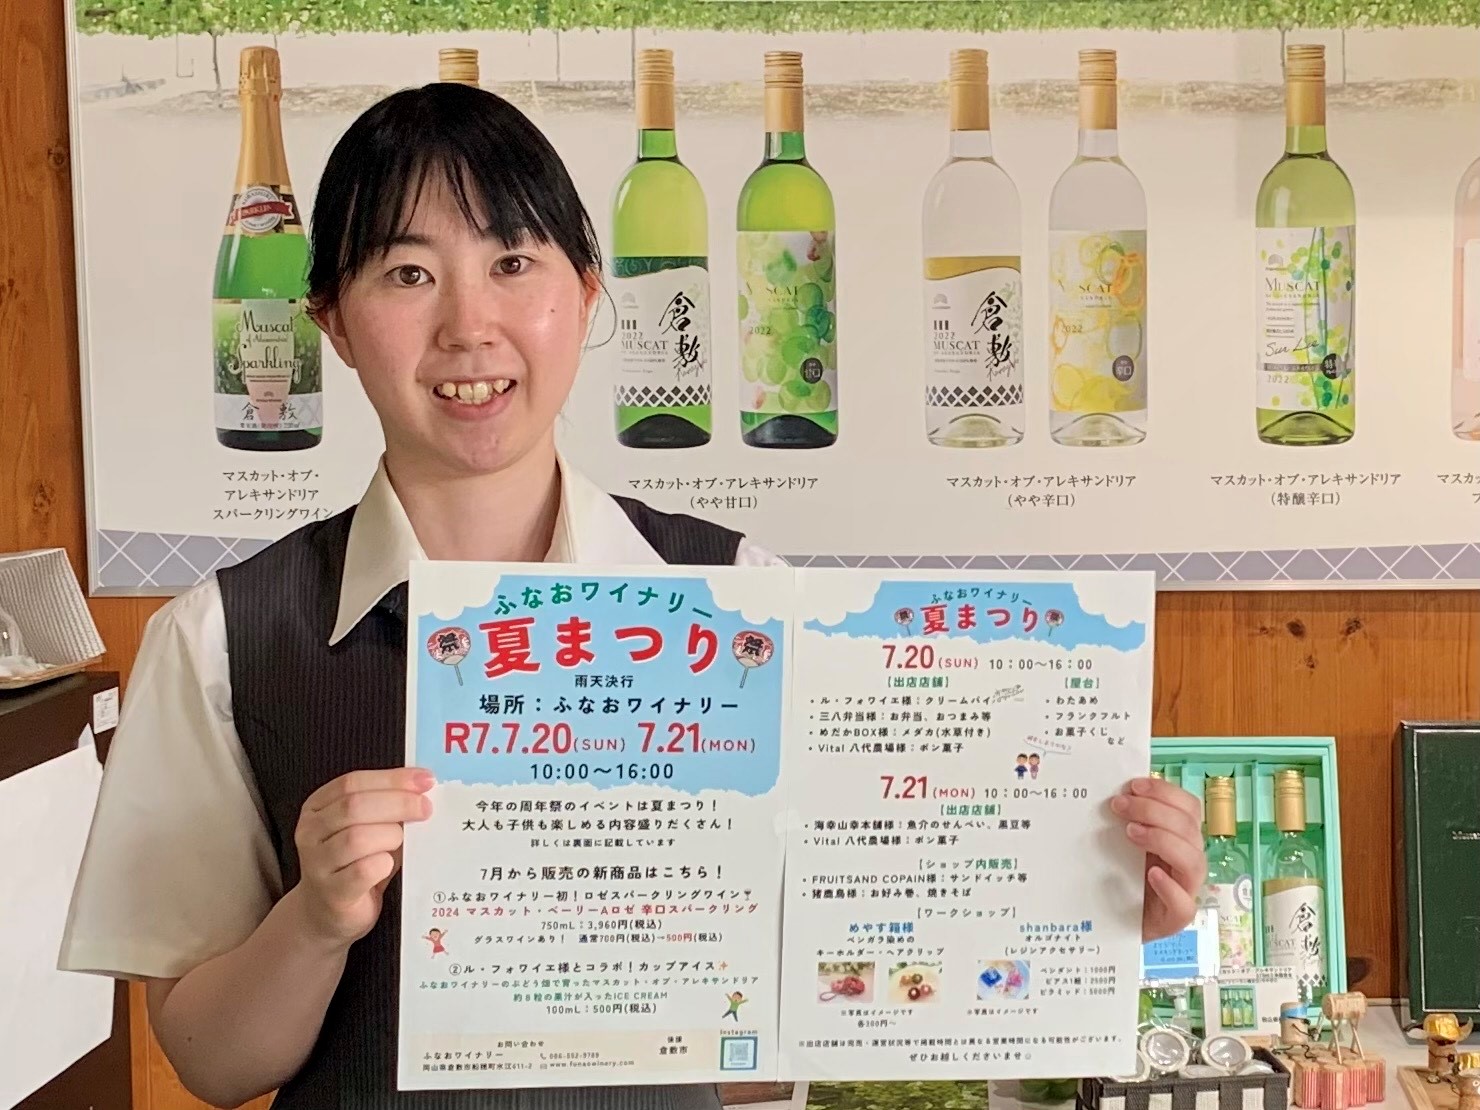 Muscat
of Alexandria
Sparkling
倉 敷
マスカット・オブ・
アレキサンドリア
スパークリングワイン
倉敷
2022
MUSCAT
MUSCAT
2022
マスカット・オブ・アレキサンドリア
(やや甘口)
倉敷
2022
MUSCAT
2022
辛口
マスカット・オブ・アレキサンドリア
(やや辛口)
MUSCAT
2022
マスカット・オブ・アレキサンドリア
(特醸辛口)
ふなおワイナリー
夏まつり
祭
祭
雨天決行
場所：ふなおワイナリー
R7.7.20(SUN) 7.21(MON)
10:00～16:00
今年の周年祭のイベントは夏まつり！
大人も子供も楽しめる内容盛りだくさん！
詳しくは裏面に記載しています
7月から販売の新商品はこちら！
①ふなおワイナリー初！ロゼスパークリングワイン
2024 マスカット・ベーリーAロゼ 辛口スパークリング
750mL：3,960円(税込)
グラスワインあり！ 通常700円(税込)→500円(税込)
②ル・フォワイエ様とコラボ！カップアイス
ふなおワイナリーのぶどう畑で育ったマスカット・オブ・アレキサンドリア
約8粒の果汁が入ったICE CREAM
100mL：500円(税込)
お問い合わせ
ふなおワイナリー
086-552-9789
岡山県倉敷市船穂町水江611-2
www.funaowinery.com
後援
倉敷市
Instagram
ふなおワイナリー
夏まつり
7.20(SUN) 10：00～16：00
【出店店舗】
・ル・フォワイエ様：クリームパイ
・三八弁当様：お弁当、おつまみ等
・めだかBOX様：メダカ(水草付き)
・Vital 八代農場様：ポン菓子
【屋台】
・わたあめ
・フランクフルト
・お菓子くじ
など
7.21(MON) 10：00～16：00
【出店店舗】
・海幸山幸本舗様：魚介のせんべい、黒豆等
・Vital 八代農場様：ポン菓子
【ショップ内販売】
・FRUITSAND COPAIN様：サンドイッチ等
・猪鹿鳥様：お好み巻、焼きそば
【ワークショップ】
めやす箱様
ベンガラ染めの
キーホルダー・ヘアクリップ
※写真はイメージです
各300円～
shanbara様
オルゴナイト
(レジンアクセサリー)
ペンダント：1000円
ピアス1組：2500円
ピラミッド：5000円
※写真はイメージです
※出店店舗は完売・運営状況等で掲載時間とは異なる営業時間になる可能性がございます。
ぜひお越しくださいませ☺
倉敷